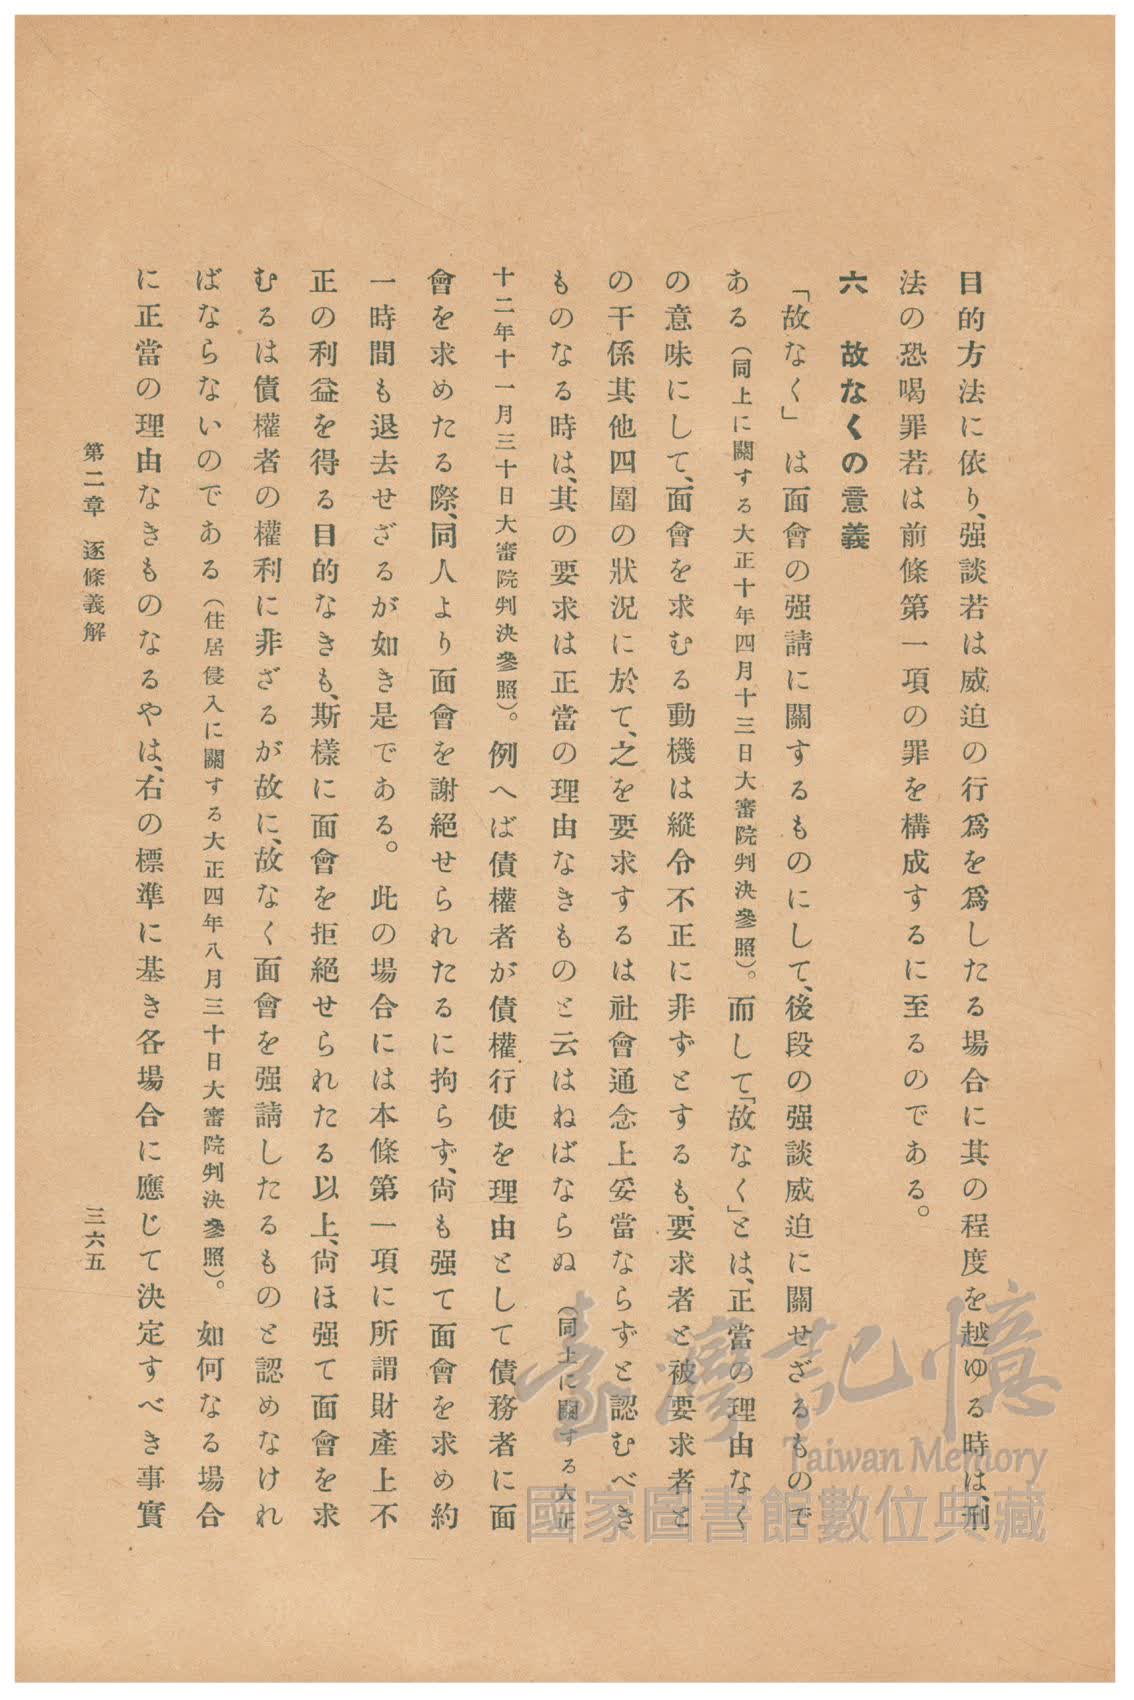 目的方法に依り、强談若は威迫の行爲を爲したる場合に其の程度を越ゆる時は、刑
法の恐喝罪若は前條第一項の罪を構成するに至るのである。
六　故なくの意義
「故なく」は面會の强請に關するものにして、後段の强談威迫に關せざるもので
ある（同上に關する大正十年四月十三日大審院判決參照）。而して「故なく」とは、正當の理由なく
の意味にして、面會を求むる動機は縱令不正に非ずとするも、要求者と被要求者と
の干係其他四圍の狀況に於て、之を要求するは社會通念上妥當ならずと認むべき
ものなる時は、其の要求は正當の理由なきものと云はねばならぬ（同上に關する大正
十二年十一月三十日大審院判決參照）。例へば債權者が債權行使を理由として債務者に面
會を求めたる際、同人より面會を謝絕せられたるに拘らず、尙も强て面會を求め約
一時間も退去せざるが如き是である。此の場合には本條第一項に所謂財產上不
正の利益を得る目的なきも、斯樣に面會を拒絕せられたる以上、尙ほ强て面會を求
むるは債權者の權利に非ざるが故に、故なく面會を强請したるものと認めなけれ
ばならないのである（住居侵入に關する大正四年八月三十日大審院判決參照）。如何なる場合
に正當の理由なきものなるやは、右の標準に基き各場合に應じて決定すべき事實
第二章　逐條義解
三六五
臺灣記憶
Taiwan Memory
國家圖書館數位典藏